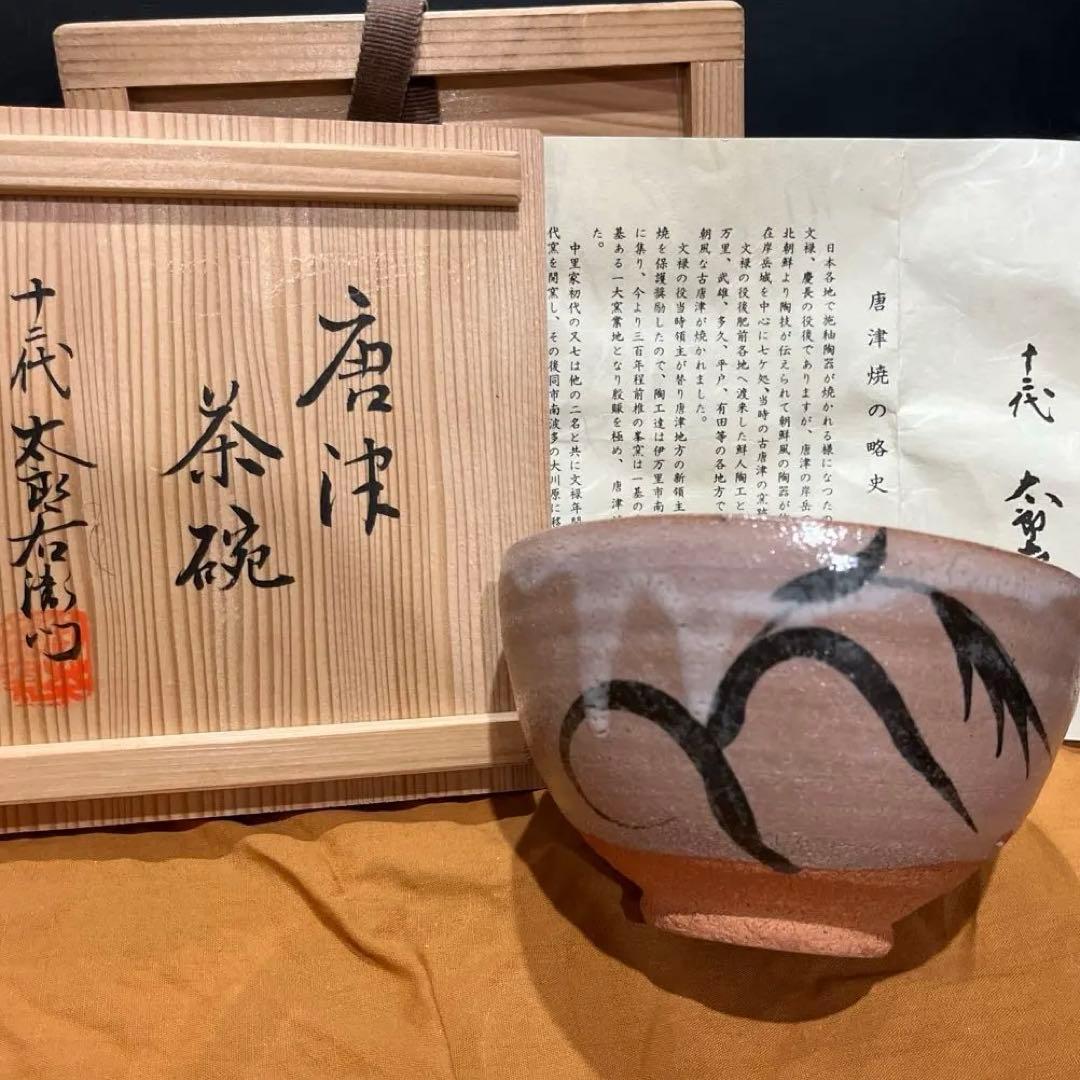 唐津
茶碗
十三代 太郎右衛門
十三代 太郎
唐津焼の略史
日本各地で施釉陶器が焼かれる様になつたの
文禄、慶長の役後でありますが、唐津の岸岳
北朝鮮より陶技が伝えられて朝鮮風の陶器が
在岸岳城を中心に七ケ処、当時の古唐津の窯跡
文禄の役後肥前各地へ渡来した鮮人陶工と
万里、武雄、多久、平戸、有田等の各地方で
朝風な古唐津が焼かれました。
文禄の役当時領主が替り唐津地方の新領主
焼を保護奨励したので、陶工達は伊万里市南
に集り、今より三百年程前椎の峯窯は一基の
基ある一大窯業地となり殷賑を極め、唐津
た。
中里家初代の又七は他の二名と共に文禄年間
代窯を開窯し、その後同市南波多の大川原に移